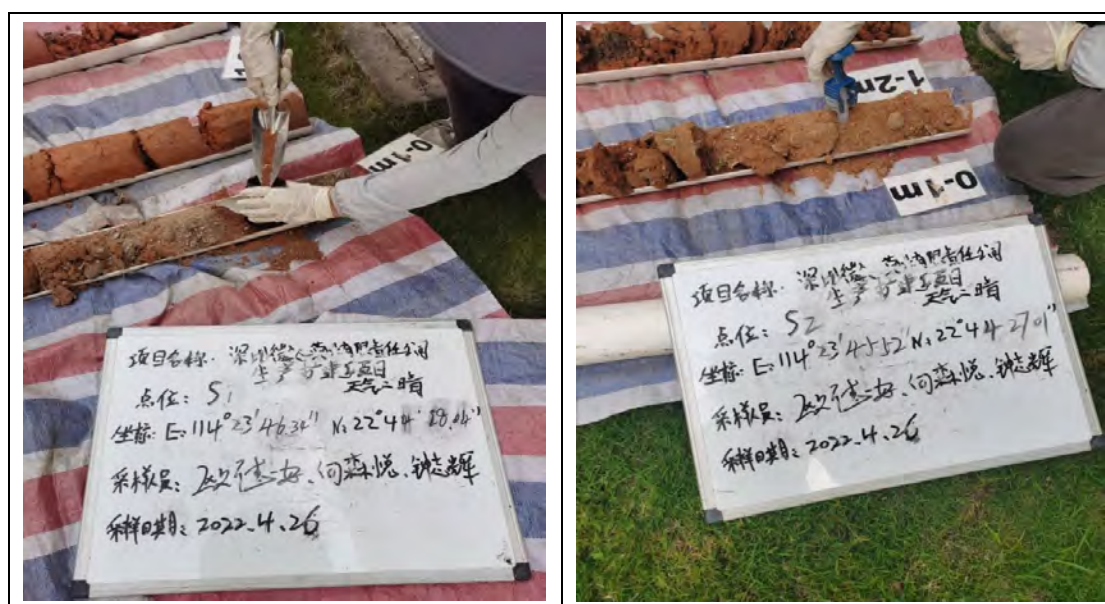 0-1m
项目名称: 深圳 有限责任公司
生产扩建项目
天气: 晴
点位: S1
坐标: E: 114°23'46.34" N: 22°44'28.04"
采样员: 、何森悦、钟志辉
采样日期: 2022.4.26
1-2m
0-1m
项目名称: 深圳 有限责任公司
生产扩建项目
天气: 晴
点位: S2
坐标: E: 114°23'45.52" N: 22°44'27.01"
采样员: 、何森悦、钟志辉
采样日期: 2022.4.26